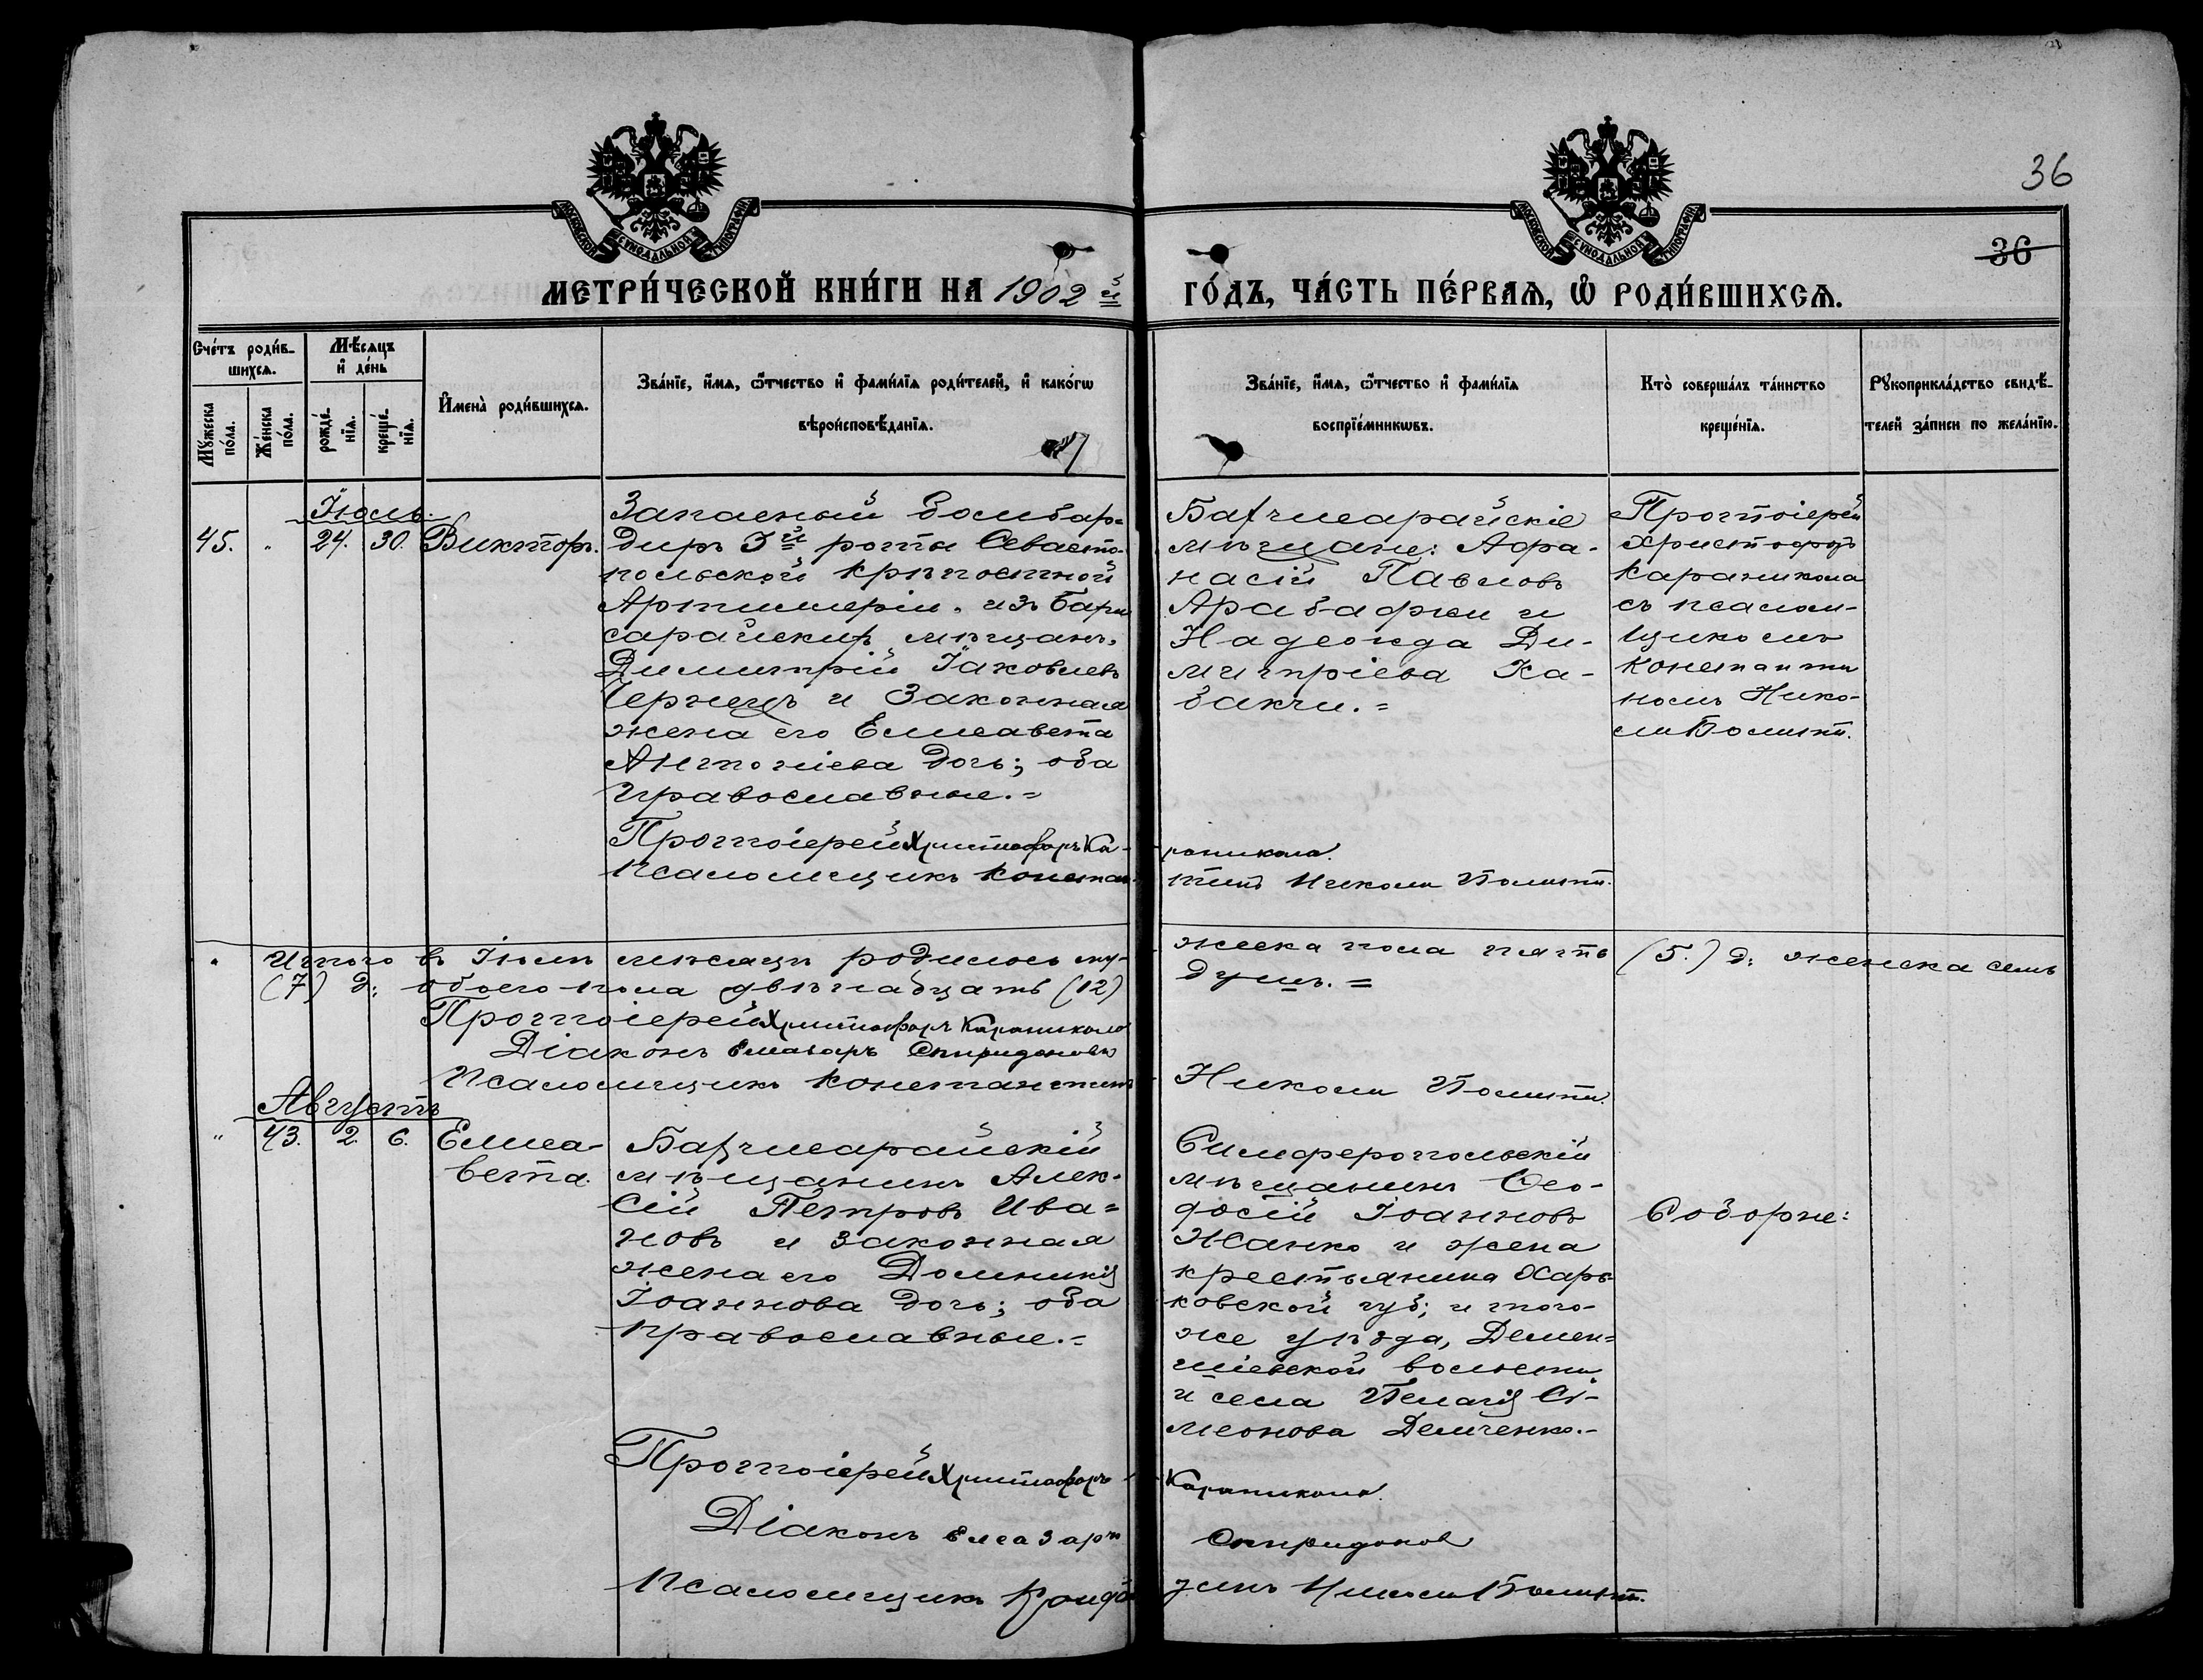 36
36
МОСКОВСКОЙ СѴНОДАЛЬНОЙ ТИПОГРАФІИ
МОСКОВСКОЙ СѴНОДАЛЬНОЙ ТИПОГРАФІИ
МЕТРИ́ЧЕСКОЙ КНИ́ГИ НА 1902й ГО́ДЪ, ЧА́СТЬ ПЕ́РВАѦ, Ѡ҆ РОДИ́ВШИХСѦ.
Сче́тъ роди́в-
шихсѧ.
Мꙋ́жеска по́ла.
Же́нска по́ла.
Мѣ́сѧцъ
и҆ де́нь
рожде́-
нїѧ.
креще́-
нїѧ.
И҆мена̀ роди́вшихсѧ.
Зва́нїе, и҆́мѧ, ѻ҆́тчество и҆ фами́лїѧ роди́телей, и҆ како́гѡ
вѣроисповѣ́данїѧ.
Зва́нїе, и҆́мѧ, ѻ҆́тчество и҆ фами́лїѧ
воспрїе́мникѡвъ.
Кто̀ соверша́лъ та́инство
креще́нїѧ.
Рꙋкоприкла́дство свидѣ́-
телей за́писи по жела́нїю.
Іюль.
45. " 24. 30. Викторъ.
Запасный бомбар=
диръ 3й роты Севасто-
польской крѣпостной
Артиллеріи. изъ Бахч
сарайскихъ мѣщанъ.
Димитрій Іаковлевъ
Чернецъ и законная
жена его Елисавета
Антоніева дочь; оба
православные.=
Бахчисарайскіе
мѣщане: Афа-
насій Павловъ
Арабаджи и
Надежда Ди-
митріева Ка-
закчи.=
Протоіерей
Христофоръ
Караникола
съ псалом-
щикомъ
Константи
номъ Нико-
ли Полити.
Протоіерей Христофоръ Караникола.
Псаломщикъ Константинъ Николи Полити.
Итого въ Іюлѣ мѣсяцѣ родилось мужеска пола пять (5.) д: женска семь
(7) д: обоего пола двѣнадцать (12) душъ.=
Протоіерей Христофоръ Караникола
Діаконъ Елеазаръ Спиридоновъ
Псаломщикъ Константинъ Николи Полити.
Августъ
" 43. 2. 6. Елиса-
вета.
Бахчисарайскій
мѣщанинъ Алек-
сій Петровъ Ива=
новъ и законная
жена его Домникія
Іоаннова дочь; оба
православные.=
Симферопольскій
мѣщанинъ Ѳео-
досій Іоанновъ
Жанко и жена
крестьянина Харь-
ковской губ; и того-
же уѣзда, Демен=
тіевской волости
и села Пелагія Сі-
меонова Демченко.-
Соборне:
Протоіерей Христофоръ Караникола.
Діаконъ Елеазаръ Спиридонов
Псаломщикъ Николи Полити.